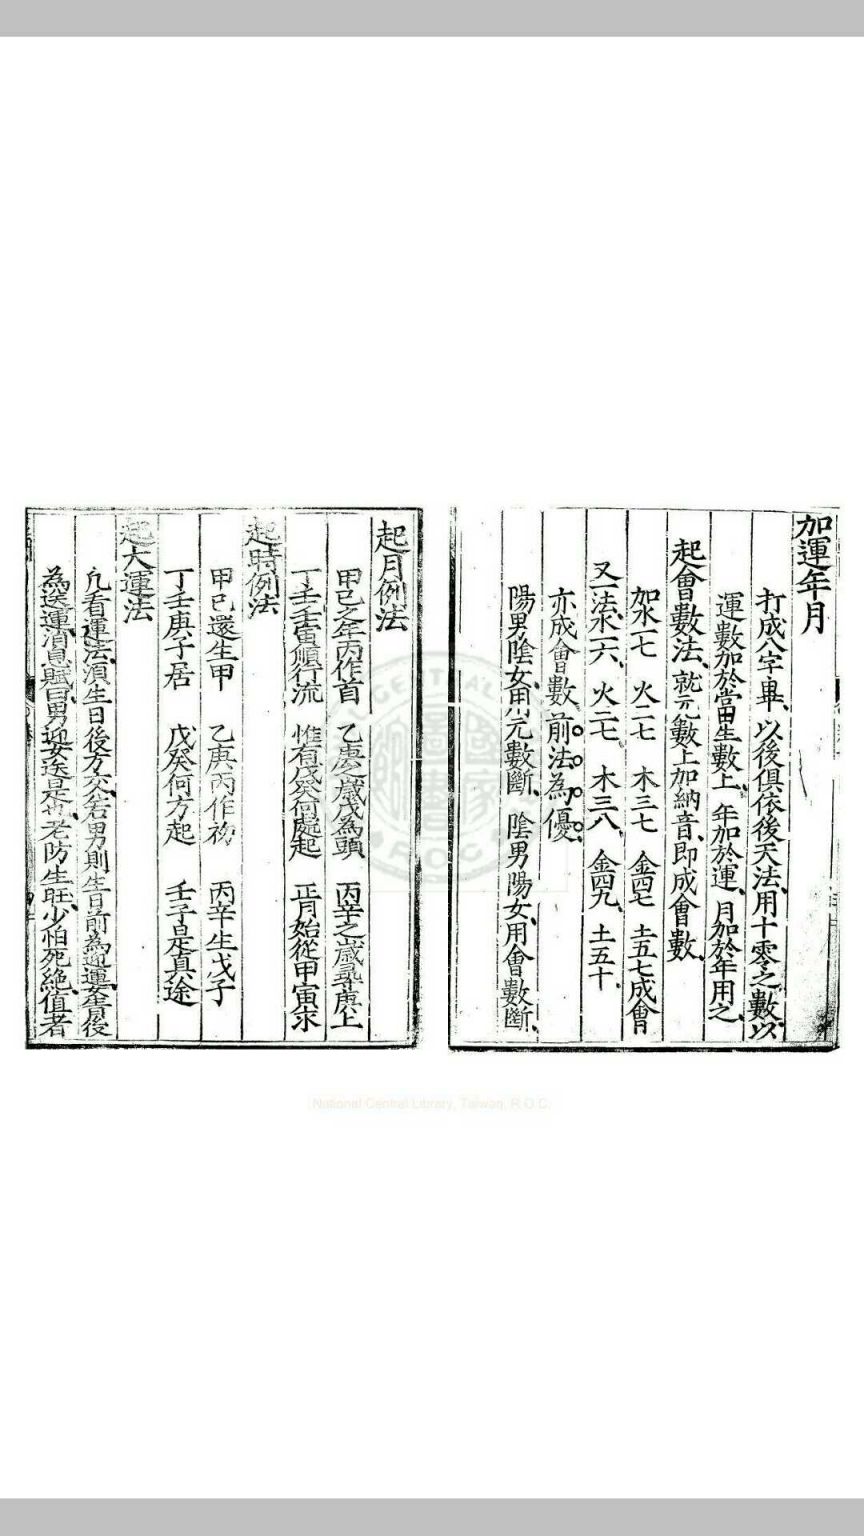 加運年月
打成八字畢、以後俱依後天法、用十零之數、以
運數加於當生數上、年加於運、月加於年用之、
起會數法、就元數上加納音、即成會數、
如水一七 火二七 木三七 金四七 土五七成會
又一法、水一六、火二七 木三八 金四九、土五十、
亦成會數 前法為優
陽男陰女、用元數斷、陰男陽女、用會數斷、
起月例法
甲己之年丙作首 乙庚之歲戊為頭 丙辛之歲尋庚上
丁壬壬寅順行流 惟有戊癸何處起 正月始從甲寅求
起時例法
甲己還生甲 乙庚丙作初 丙辛生戊子
丁壬庚子居 戊癸何方起 壬子是真途
起大運法
凡看運法、須生日後方交、若男則生日前為迎運、女若後
為送運、消息賦曰、男迎女送是也、老防生旺、少怕死絶、值者
National Central Library, Taiwan, R.O.C.